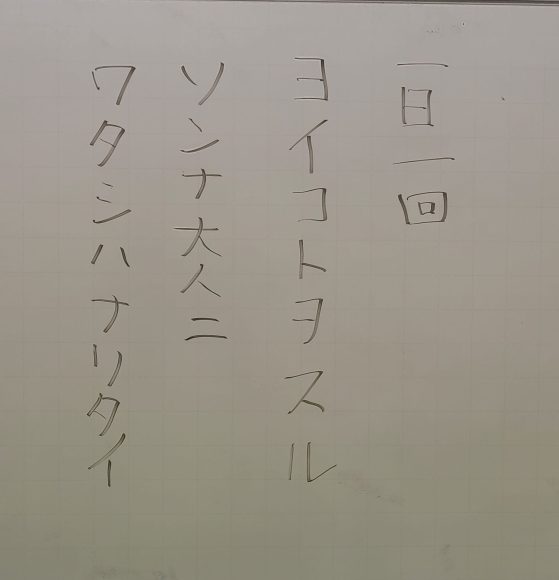 一日一回
ヨイコトヲスル
ソンナ大人ニ
ワタシハナリタイ